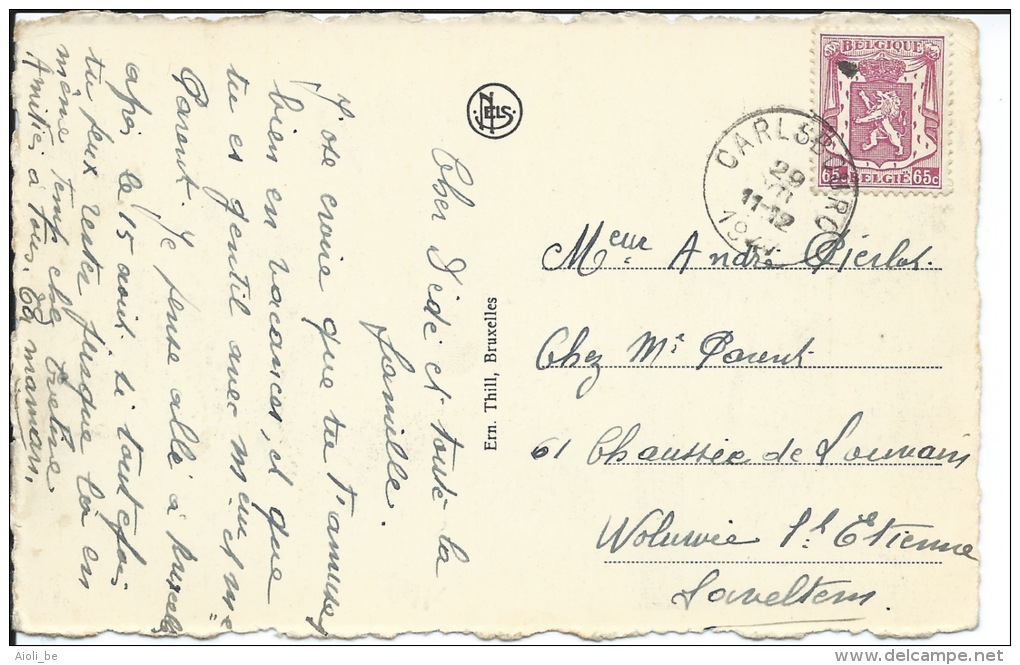 Cher Dédé et toute la
famille.
J'ose croire que tu t'amuses
bien en vacances, et que
tu es gentil avec Meur et Me
Parent. Je pense allé à
après le 15 août. Si toutefois
tu peux rester jusque là en
même temps che
Amitiés à tous. Ta maman.
NELS
Ern. Thill, Bruxelles
BELGIQUE
65c BELGIË 65c
CARLSBOURG
29
VII
11-12
Meur André Pierlot.
Chez Mr Parent
61 Chaussée de Louvain
Woluwée St Etienne
Saveltem.
Aioli_be